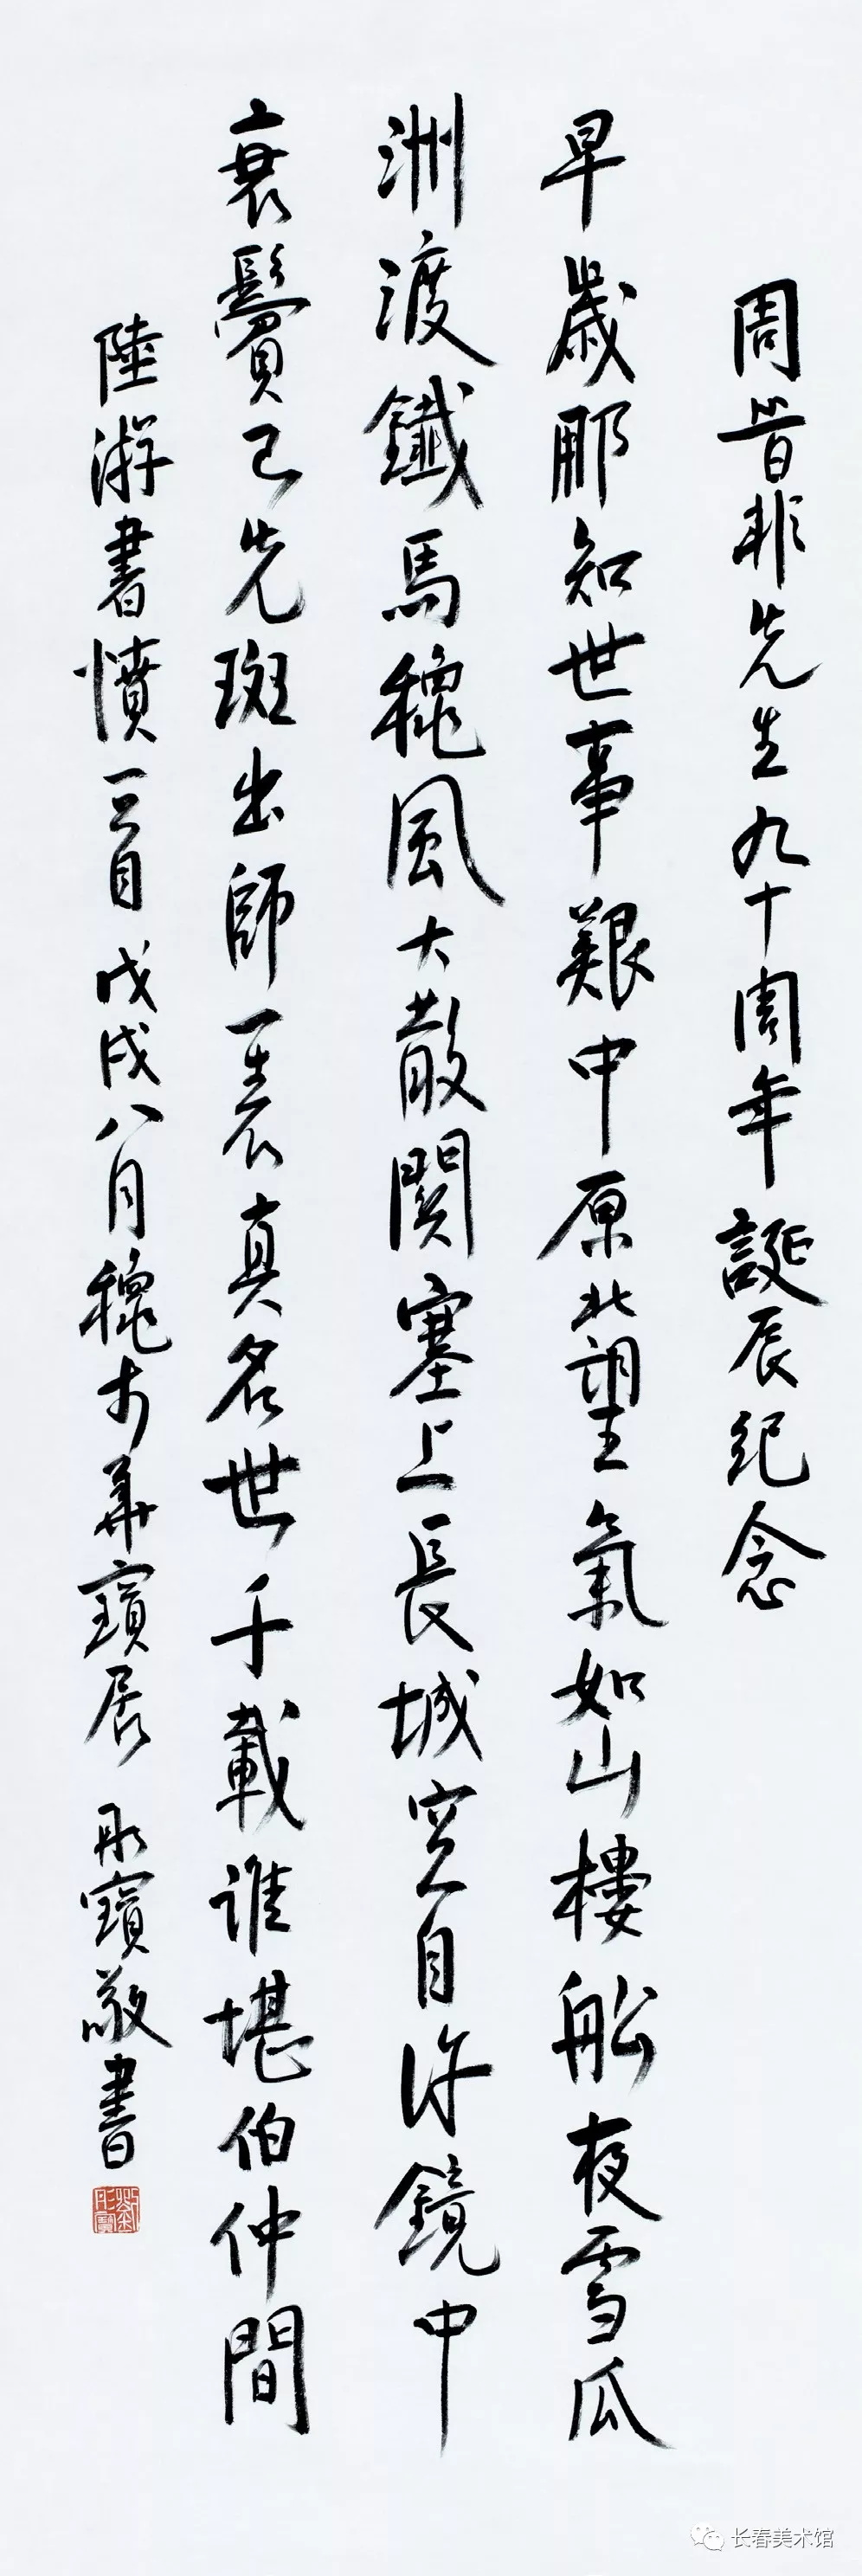 周昔非先生九十周年誕辰紀念
早歲那知世事艱中原北望氣如山樓船夜雪瓜
洲渡鐵馬穐風大散関塞上長城空自許鏡中
衰鬢已先斑出師一表真名世千載誰堪伯仲間
陸游書憤一首戊戌八月穐於華寶居 彤寶敬書
长春美术馆